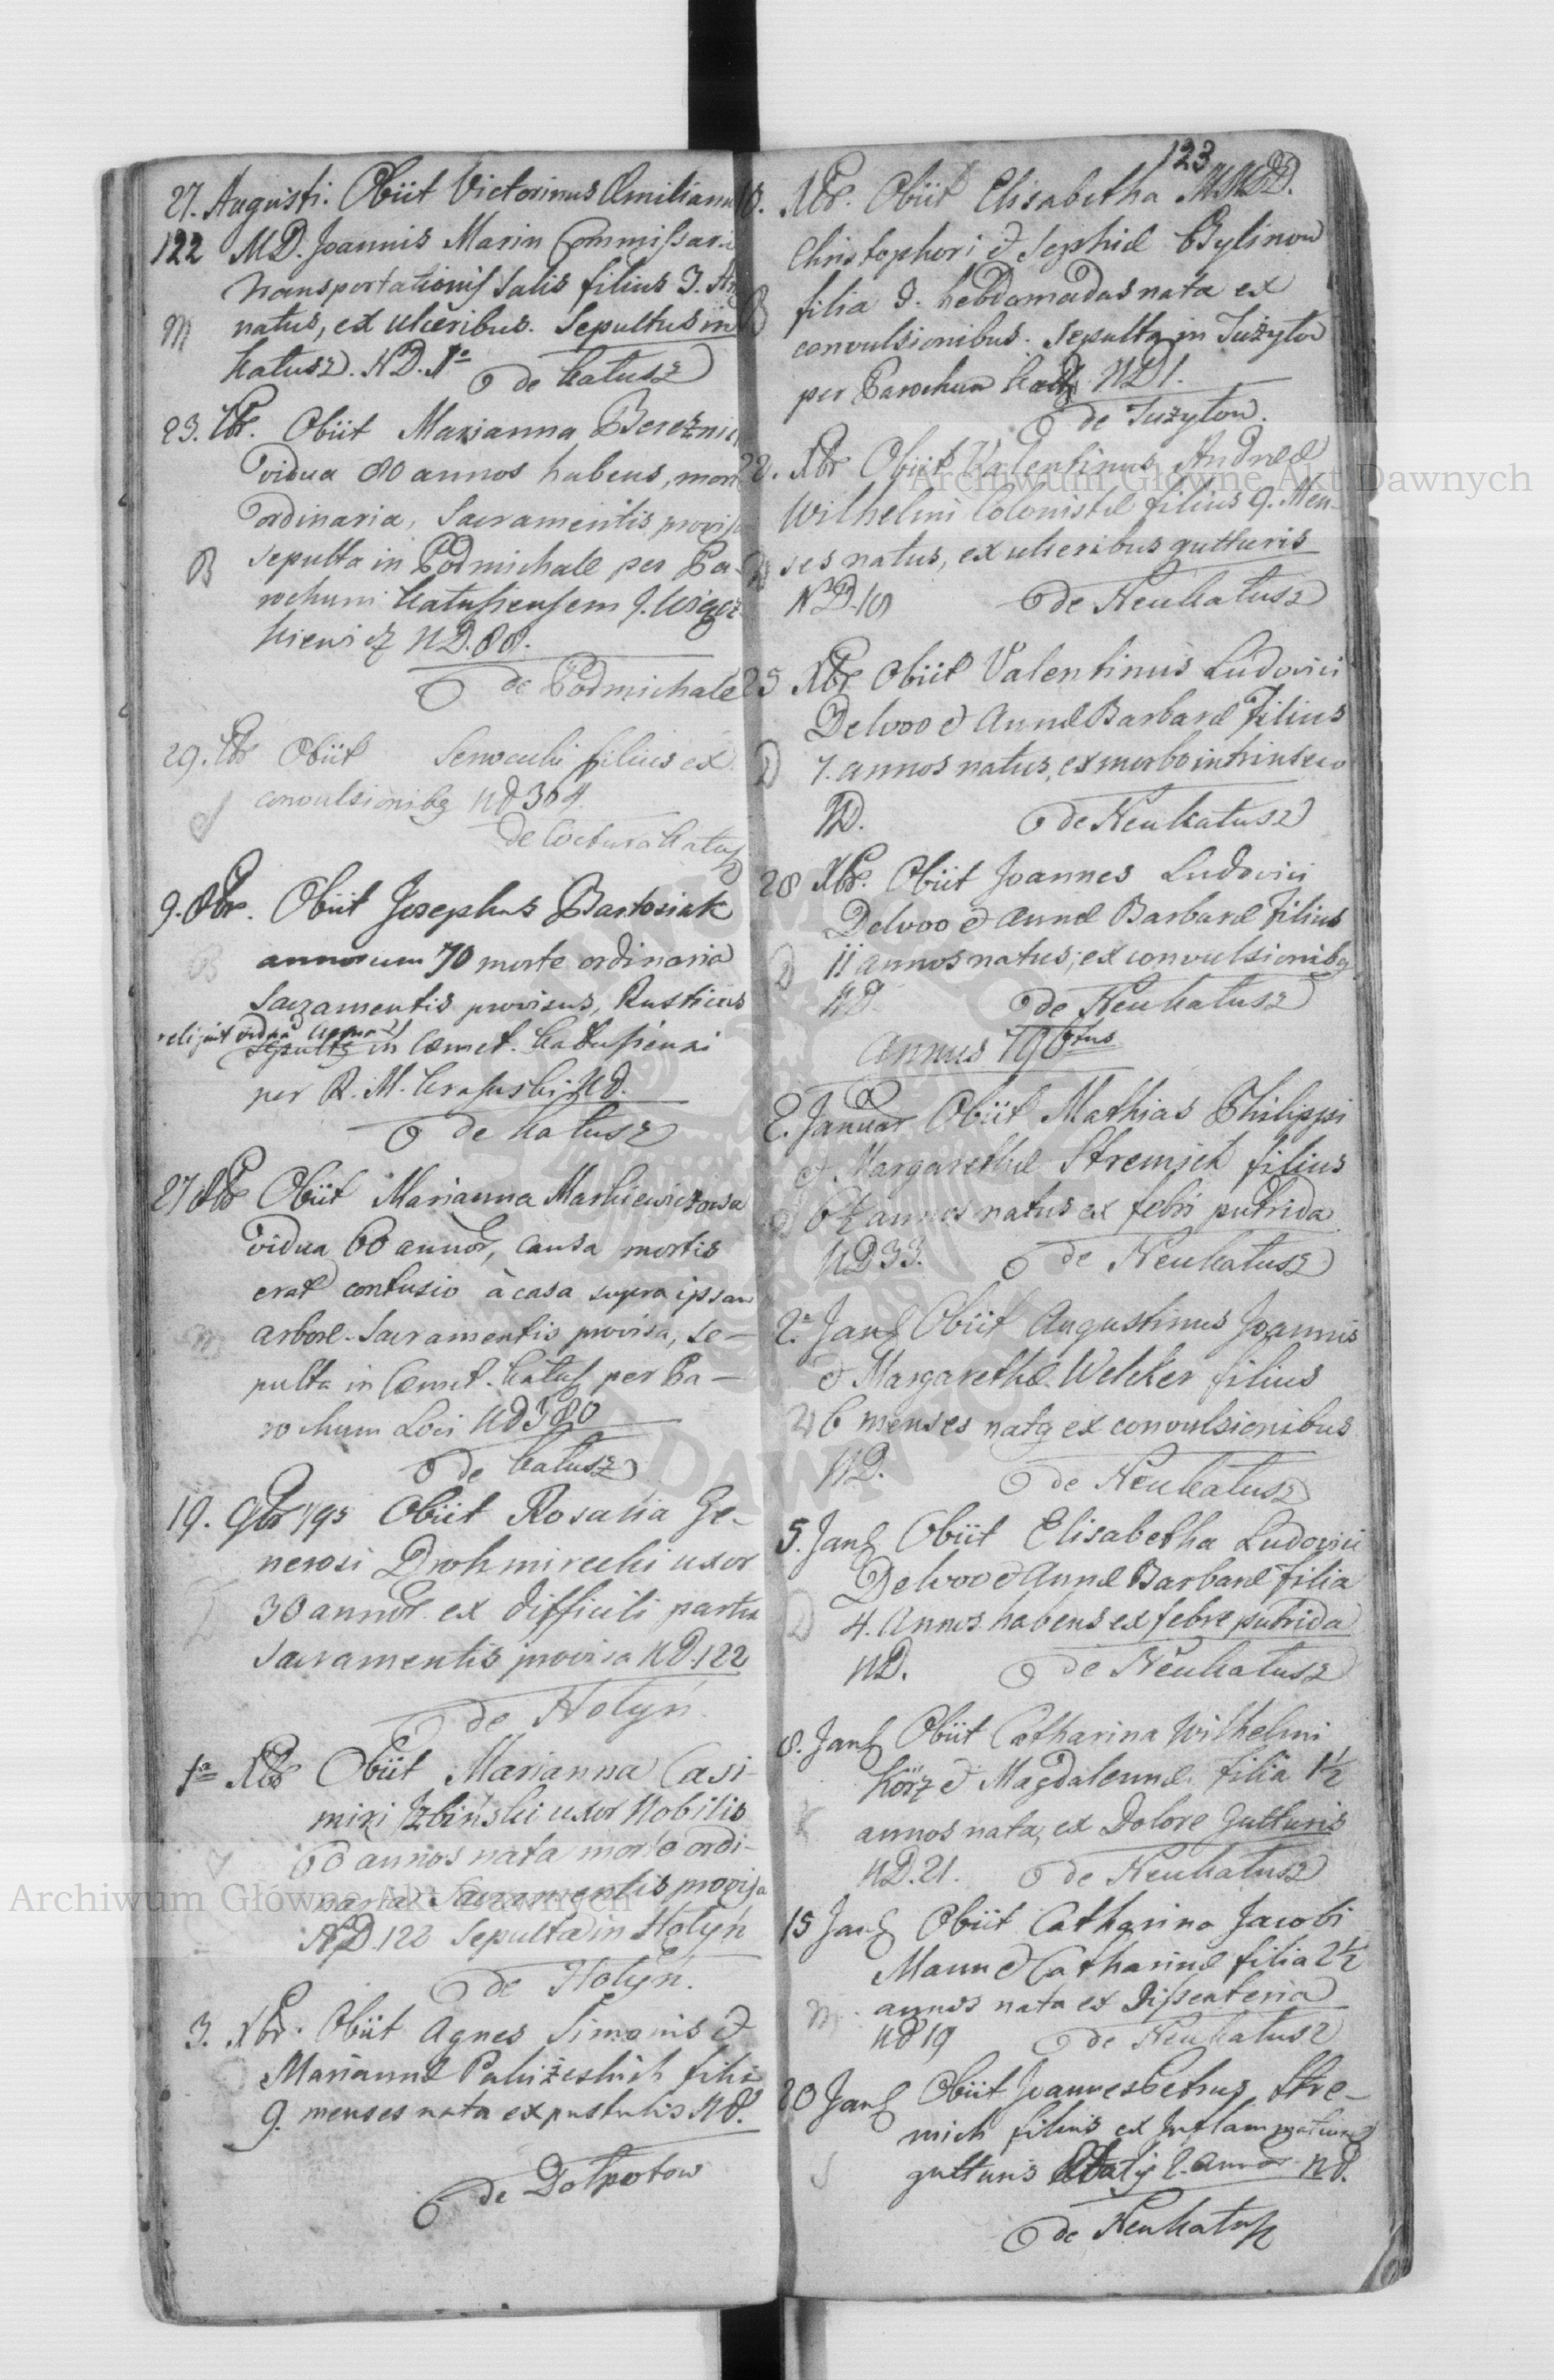 27. Augusti. Obiit Victorinus Emilianus
122 MD. Joannis Marin Commissarii
Transportationis Salis filius 3. An
M natus, ex ulceribus. Sepultus in
Kałusz. ND. 1a
de Kałusz
23. 7br. Obiit Marianna Bereznic
vidua 80 annos habens, mort
ordinaria, Sacramentis provisa
B sepulta in Podmichale per Pa-
rochum Kałusiensem J.
kiewicz ND. 88.
de Podmichale
29. 7br Obiit filius ex
S convulsionibg Nd 304.
de Coctura Kałus
9. 8br. Obiit Josephus Bartosiak
B annorum 70 morte ordinaria
Sacramentis provisus, Rusticus
relquit vidua
in Cæmet. Kałusiensi
per R. M. Nd.
de Kałusz
27 8br Obiit Marianna Markiewiczowa
vidua 60 annor, causa mortis
erat contusio à casa supra ipsam
M arbore. Sacramentis provisa, se-
pulta in Cæmet. Kałus per Pa-
rochum Loci Nd 380
de Kałusz
19. 9br 795 Obiit Rosalia Ge-
nerosi Drohmirecki uxor
30 annor. ex difficili partu
Sacramentis provisa ND. 122
de Hołyń.
1a Xbr Obiit Marianna Casi-
miri Izbiński uxor Nobilis
60 annos nata morte ordi-
naria Sacramentis provisa
ND. 122 Sepulta in Hołyń
de Hołyń.
3. Xbr. Obiit Agnes Simonis &
Mariannæ filia
9. menses nata ex pustulis Nd.
de Dołpotow
123
10. Xbr. Obiit Elisabetha MMDD.
Christophori & Sophiæ Bylinow
B filia 3. hebdomadas nata ex
convulsionibus. Sepulta in Tużyłow
per Parochum ND 1.
de Tużyłow.
22. Xbr Obiit Valentinus Andreæ
Wilhelmi Colonistæ filius 9. Men-
ses natus, ex ulceribus gutturis
ND. 18 de Neukałusz
25 Xbr Obiit Valentinus Ludovici
Delvoo & Annæ Barbaræ Filius
D 7. annos natus, ex morbo intrinseco
ND. de Neukałusz
28 Xbr. Obiit Joannes Ludovici
Delvoo & Annæ Barbaræ Filius
D 11 annos natus, ex convulsionibg
ND. de Neukałusz
Annus 796tus
2. Januar Obiit Mathias Philippi
& Margarethæ Stremich filius
6½ annos natus ex febri putrida
ND 33. de Neukałusz
2a Jan Obiit Augustinus Joannis
& Margarethæ Welcker filius
W 6 menses natg ex convulsionibus
ND. de Neukałusz
5. Jan Obiit Elisabetha Ludovici
Delvoo & Annæ Barbaræ filia
D 4. Annos habens ex febre putrida
ND. de Neukałusz
8. Jan Obiit Catharina Wilhelmi
Körz & Magdalennæ filia 1½
K annos nata, ex Dolore Gutturis
ND. 21. de Neukałusz
15 Jan Obiit Catharina Jacobi
Maun & Catharinæ filia 2½
M annos nata ex Dissenteria
Nd 19 de Neukałusz
20 Jan Obiit Joannes Petrus Stre-
mich filius ex Inflammatione
S gutturis Ætatis 2. annor Nd.
de Neukałusz
Archiwum Główne Akt Dawnych
Archiwum Główne Akt Dawnych